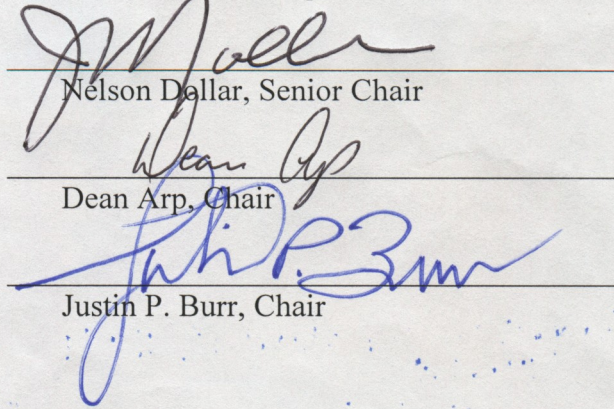 Nelson Dollar, Senior Chair
Dean Arp
Dean Arp, Chair
Justin P. Burr
Justin P. Burr, Chair